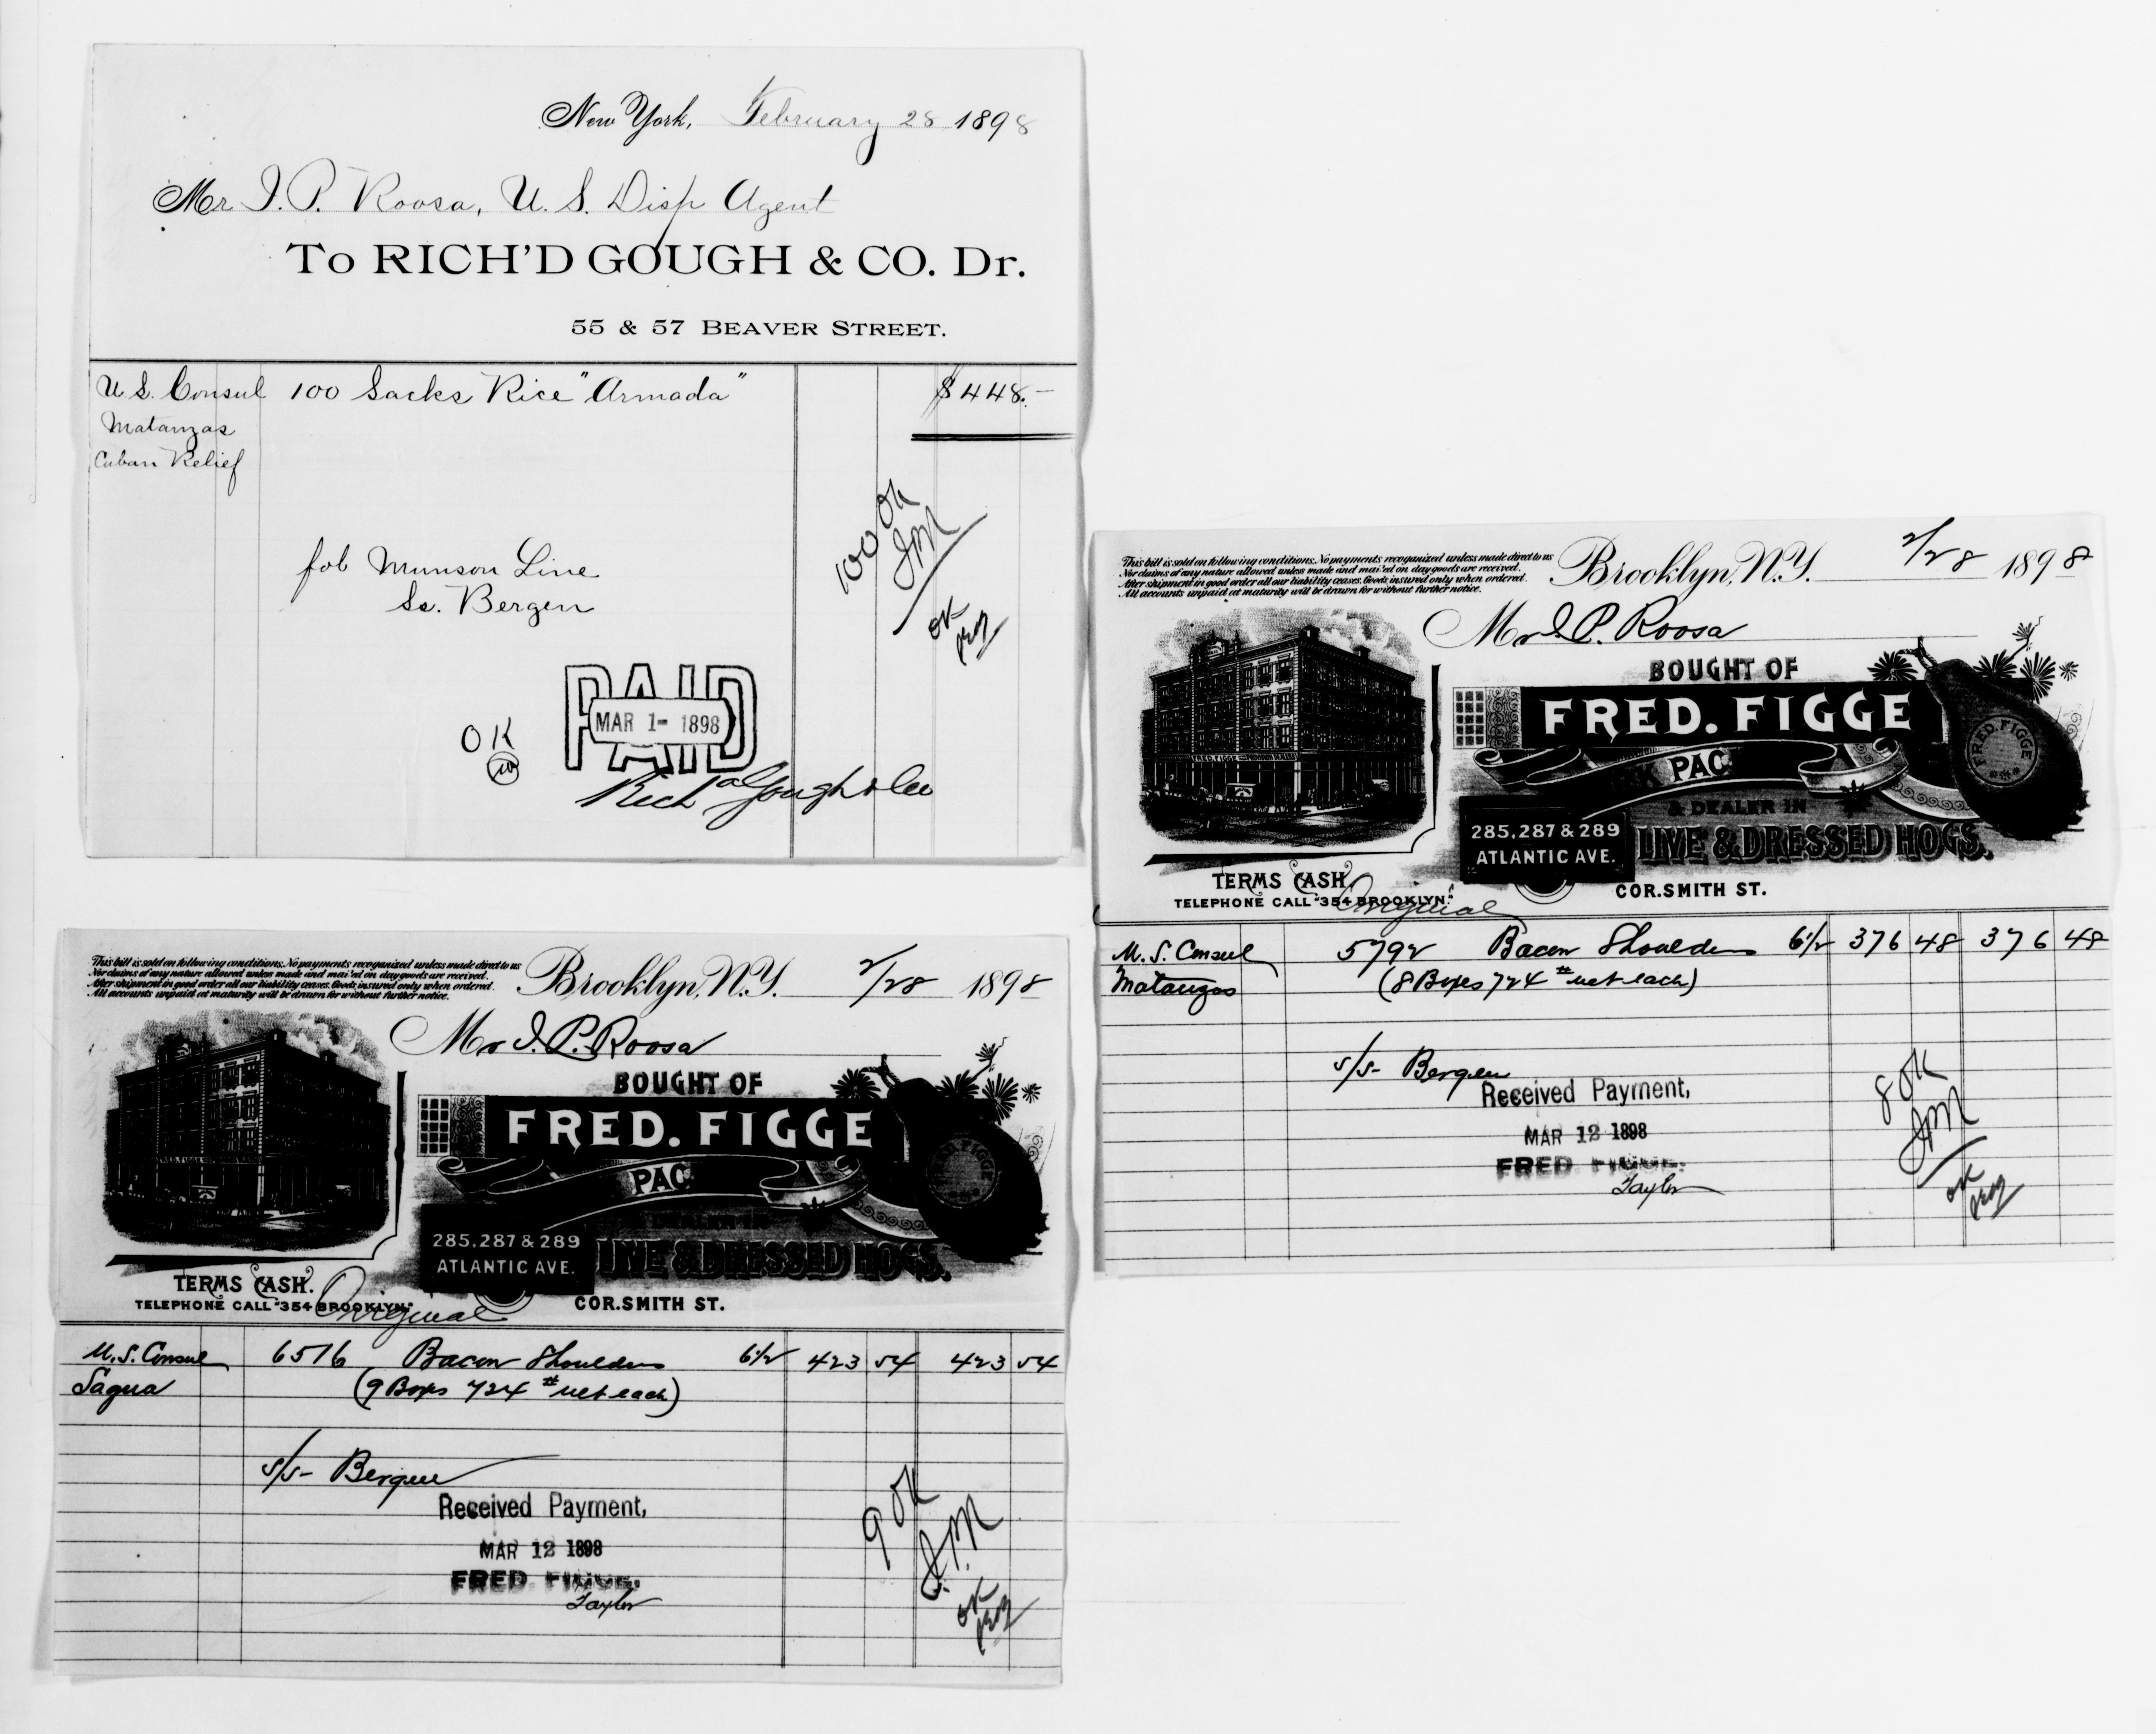 New York, February 28 1898
Mr I. P. Roosa, U. S. Disp Agent
To RICH'D GOUGH & CO. Dr.
55 & 57 BEAVER STREET.
U S. Consul 100 Sacks Rice "Armada" $448.-
Matanzas
Cuban Relief
100 OK
JM
fob Munson Line
Ss. Bergen
OK
PAID
MAR 1- 1898
OK
Rich'd Gough & Co
This bill is sold on following conditions. No payments recoganized unless made direct to us
Nor claims of any nature allowed unless made and mai'ed on day goods are received.
After shipment in good order all our liability ceases. Goods insured only when ordered.
All accounts unpaid at maturity will be drawn for without further notice.
Brooklyn, N.Y. 2/28 1898
Mr I. P. Roosa
BOUGHT OF
FRED. FIGGE
FRED. FIGGE
PAC
& DEALER IN
285, 287 & 289
ATLANTIC AVE.
LIVE & DRESSED HOGS.
TERMS CASH
TELEPHONE CALL "354 BROOKLYN."
COR. SMITH ST.
Original
U. S. Consul 5792 Bacon Shoulders 6 1/2 376 48 376 48
Matanzas (8 Boxes 724 # net each)
s/s- Bergen
Received Payment,
MAR 12 1898
FRED. FIGGE.
Taylor
8 OK
JM
OK
This bill is sold on following conditions. No payments recoganized unless made direct to us
Nor claims of any nature allowed unless made and mai'ed on day goods are received.
After shipment in good order all our liability ceases. Goods insured only when ordered.
All accounts unpaid at maturity will be drawn for without further notice.
Brooklyn, N.Y. 2/28 1898
Mr I. P. Roosa
BOUGHT OF
FRED. FIGGE
PAC
285, 287 & 289
ATLANTIC AVE.
LIVE & DRESSED HOGS.
TERMS CASH.
TELEPHONE CALL "354 BROOKLYN."
COR. SMITH ST.
Original
U. S. Consul 6516 Bacon Shoulders 6 1/2 423 54 423 54
Sagua (9 Boxes 724 # net each)
s/s- Bergen
Received Payment,
MAR 12 1898
FRED. FIGGE.
Taylor
9 OK
J.M
OK